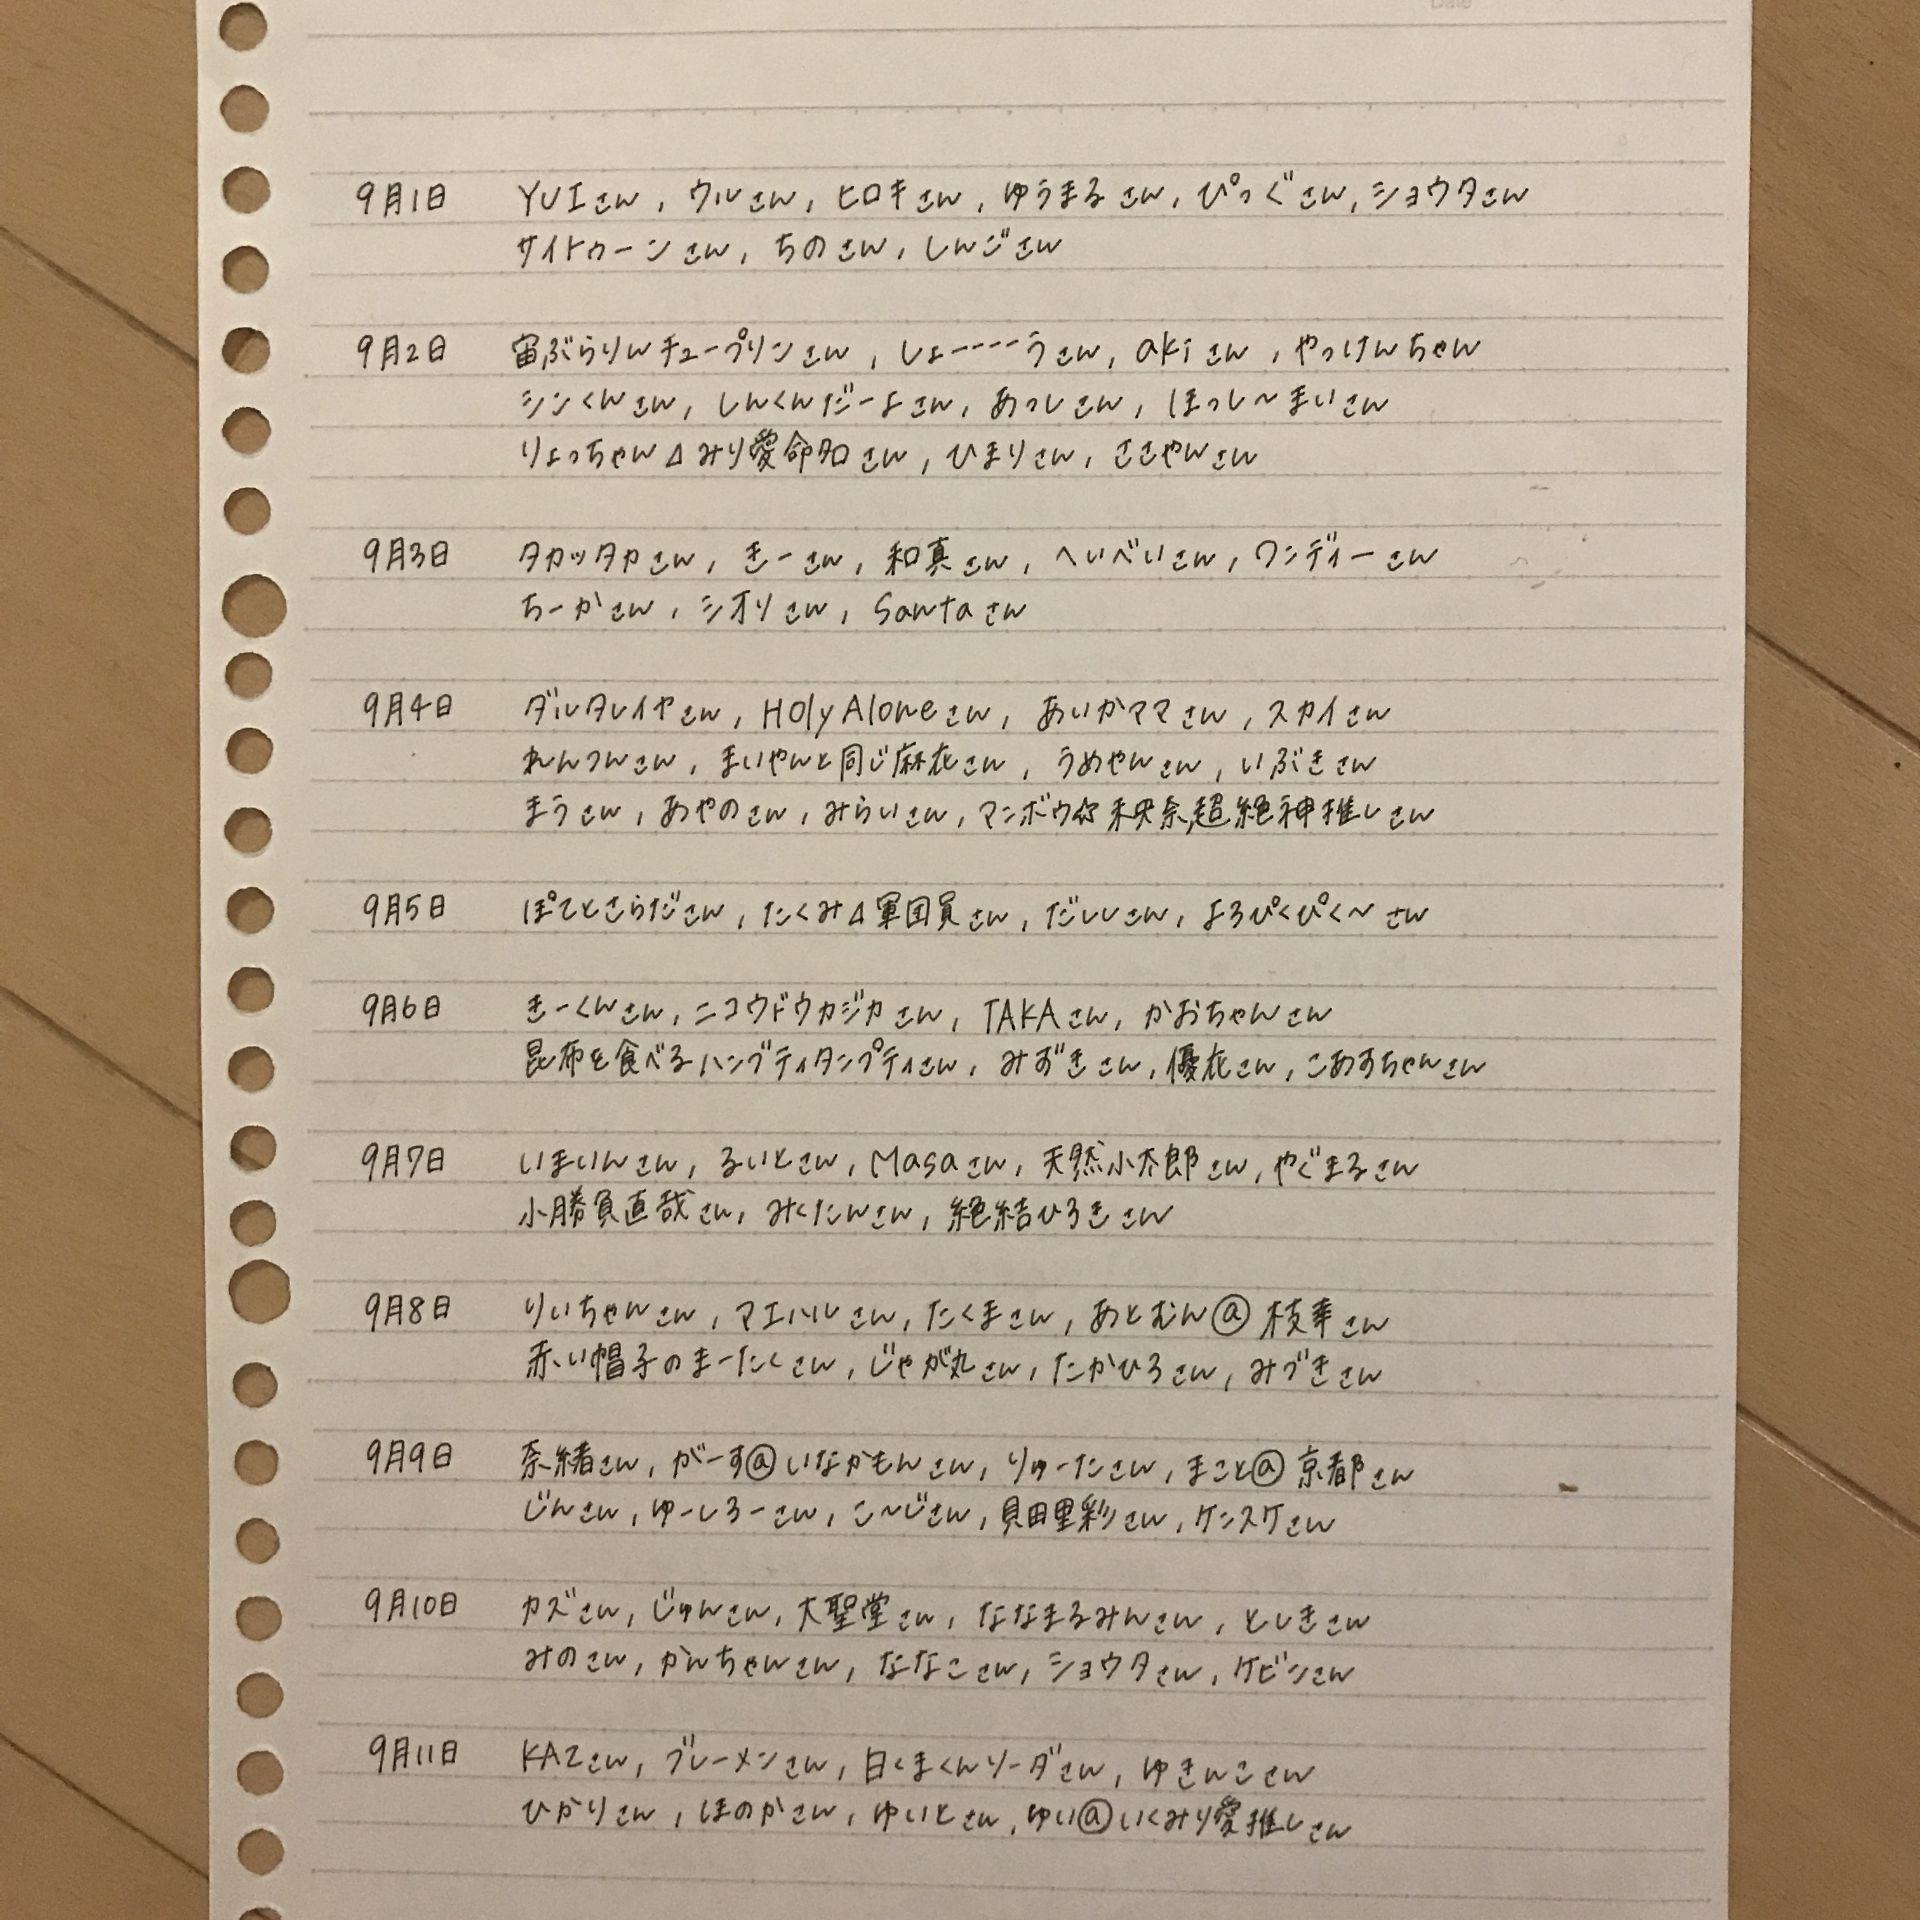 Date
9月1日 YUIさん, ウルさん, ヒロキさん, ゆうまるさん, ぴっぐさん, ショウタさん
サイトゥーンさん, ちのさん, しんごさん
9月2日 宙ぶらりんチュープリンさん, しょーーーーうさん, akiさん, やっけんちゃん
シンくんさん, しんくんだーよさん, あっしさん, ほっし〜まいさん
りょっちゃん⊿みり愛命名さん, ひまりさん, ささやんさん
9月3日 タカッタカさん, きーさん, 和真さん, へいべいさん, ワンディーさん
ちーかさん, シオリさん, Santaさん
9月4日 ダルタレイヤさん, Holy Aloneさん, あいかママさん, スカイさん
れんつんさん, まいやんと同じ麻衣さん, うめやんさん, いぶきさん
まうさん, あやのさん, みらいさん, マンボウ☆未央奈超絶神推しさん
9月5日 ぽてとさらださん, たくみ⊿軍団員さん, だししさん, よろぴくぴく〜さん
9月6日 きーくんさん, ニコウドウカジカさん, TAKAさん, かおちゃんさん
昆布を食べるハンプティタンプティさん, みずきさん, 優衣さん, こあすちゃんさん
9月7日 いまいんさん, るいとさん, Masaさん, 天然小太郎さん, やぐまるさん
小勝負直哉さん, みくたんさん, 絶結ひろきさん
9月8日 りいちゃんさん, マエハルさん, たくまさん, あとむん@枝幸さん
赤い帽子のまーたくさん, じゃが丸さん, たかひろさん, みづきさん
9月9日 奈緒さん, がーす@いなかもんさん, りゅーたさん, まこと@京都さん
じんさん, ゆーしろーさん, こ〜じさん, 貝田里彩さん, ケンスケさん
9月10日 カズさん, じゅんさん, 大聖堂さん, ななまるみんさん, としきさん
みのさん, かんちゃんさん, ななこさん, ショウタさん, ケビンさん
9月11日 KAZさん, ブレーメンさん, 白くまくんソーダさん, ゆきんこさん
ひかりさん, ほのかさん, ゆいとさん, ゆい@いくみり愛推しさん